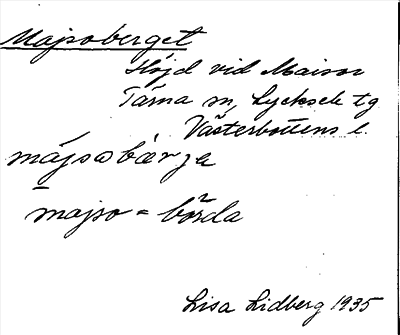 Majsoberget
Höjd vid Maisor
Tärna sn, Lycksele tg
Västerbottens l.
májsωbær̨je
majso = börda
Lisa Lidberg 1935